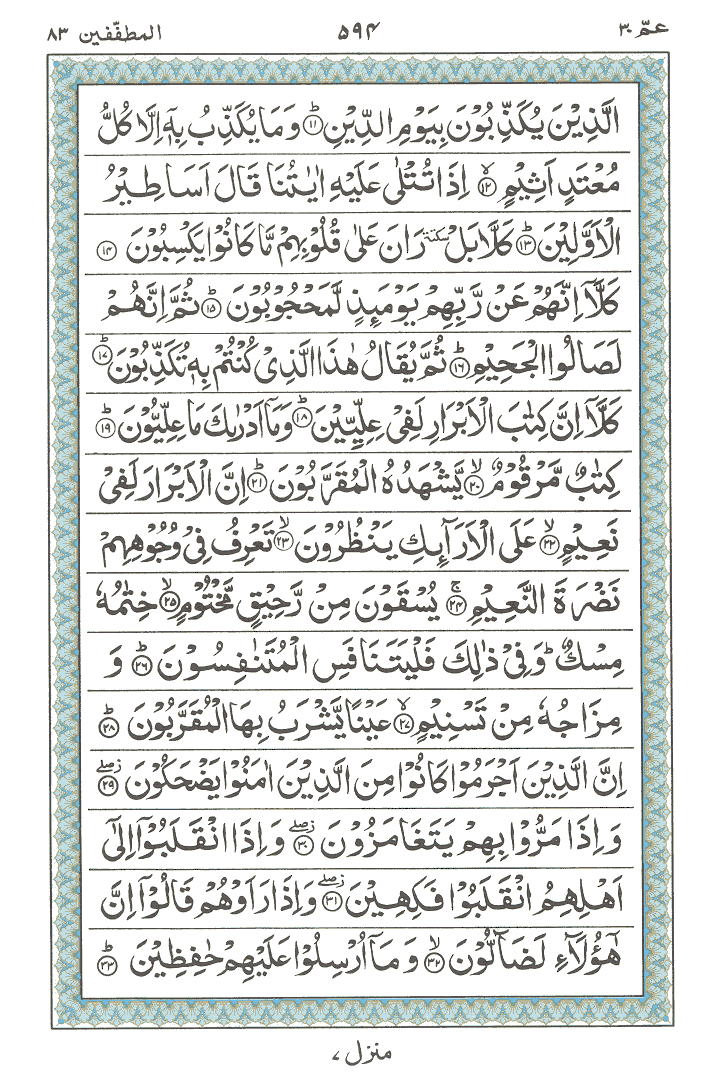 عمّ ٣٠ ٥٩٤ المطفّفين ٨٣
الَّذِيۡنَ يُكَذِّبُوۡنَ بِيَوۡمِ الدِّيۡنِ ؕ‏ ﴿۱۱﴾ وَمَا يُكَذِّبُ بِهٖۤ اِلَّا كُلُّ
مُعۡتَدٍ اَثِيۡمٍ ۙ‏ ﴿۱۲﴾ اِذَا تُتۡلٰى عَلَيۡهِ اٰيٰتُنَا قَالَ اَسَاطِيۡرُ
الۡاَوَّلِيۡنَ ؕ‏ ﴿۱۳﴾ كَلَّا بَلۡ سكتة رَانَ عَلٰى قُلُوۡبِهِمۡ مَّا كَانُوۡا يَكۡسِبُوۡنَ‏ ﴿۱۴﴾
كَلَّاۤ اِنَّهُمۡ عَنۡ رَّبِّهِمۡ يَوۡمَٮِٕذٍ لَّمَحۡجُوۡبُوۡنَ ؕ‏ ﴿۱۵﴾ ثُمَّ اِنَّهُمۡ
لَصَالُوا الۡجَحِيۡمِ ؕ‏ ﴿۱۶﴾ ثُمَّ يُقَالُ هٰذَا الَّذِىۡ كُنۡتُمۡ بِهٖ تُكَذِّبُوۡنَ ؕ‏ ﴿۱۷﴾
كَلَّاۤ اِنَّ كِتٰبَ الۡاَبۡرَارِ لَفِىۡ عِلِّيِّيۡنَ ؕ‏ ﴿۱۸﴾ وَمَاۤ اَدۡرٰٮكَ مَا عِلِّيُّوۡنَ ؕ‏ ﴿۱۹﴾
كِتٰبٌ مَّرۡقُوۡمٌ ۙ‏ ﴿۲۰﴾ يَّشۡهَدُهُ الۡمُقَرَّبُوۡنَ ؕ‏ ﴿۲۱﴾ اِنَّ الۡاَبۡرَارَ لَفِىۡ
نَعِيۡمٍ ۙ‏ ﴿۲۲﴾ عَلَى الۡاَرَآٮِٕكِ يَنۡظُرُوۡنَ ۙ‏ ﴿۲۳﴾ تَعۡرِفُ فِىۡ وُجُوۡهِهِمۡ
نَضۡرَةَ النَّعِيۡمِ ۚ‏ ﴿۲۴﴾ يُسۡقَوۡنَ مِنۡ رَّحِيۡقٍ مَّخۡتُوۡمٍ ۙ‏ ﴿۲۵﴾ خِتٰمُهٗ
مِسۡكٌ ؕ وَفِىۡ ذٰلِكَ فَلۡيَتَنَافَسِ الۡمُتَنٰفِسُوۡنَ ؕ‏ ﴿۲۶﴾ وَ
مِزَاجُهٗ مِنۡ تَسۡنِيۡمٍ ۙ‏ ﴿۲۷﴾ عَيۡنًا يَّشۡرَبُ بِهَا الۡمُقَرَّبُوۡنَ ؕ‏ ﴿۲۸﴾
اِنَّ الَّذِيۡنَ اَجۡرَمُوۡا كَانُوۡا مِنَ الَّذِيۡنَ اٰمَنُوۡا يَضۡحَكُوۡنَ ۖ ز‏ ﴿۲۹﴾
وَاِذَا مَرُّوۡا بِهِمۡ يَتَغَامَزُوۡنَ ۖ ز‏ ﴿۳۰﴾ وَاِذَا انْقَلَبُوۡۤا اِلٰٓى
اَهۡلِهِمُ انْقَلَبُوۡا فَكِهِيۡنَ ۖ ز‏ ﴿۳۱﴾ وَاِذَا رَاَوۡهُمۡ قَالُوۡۤا اِنَّ
هٰٓؤُلَاۤءِ لَـضَآلُّوۡنَ ۙ‏ ﴿۳۲﴾ وَمَاۤ اُرۡسِلُوۡا عَلَيۡهِمۡ حٰفِظِيۡنَ ؕ‏ ﴿۳۳﴾
منزل ٧